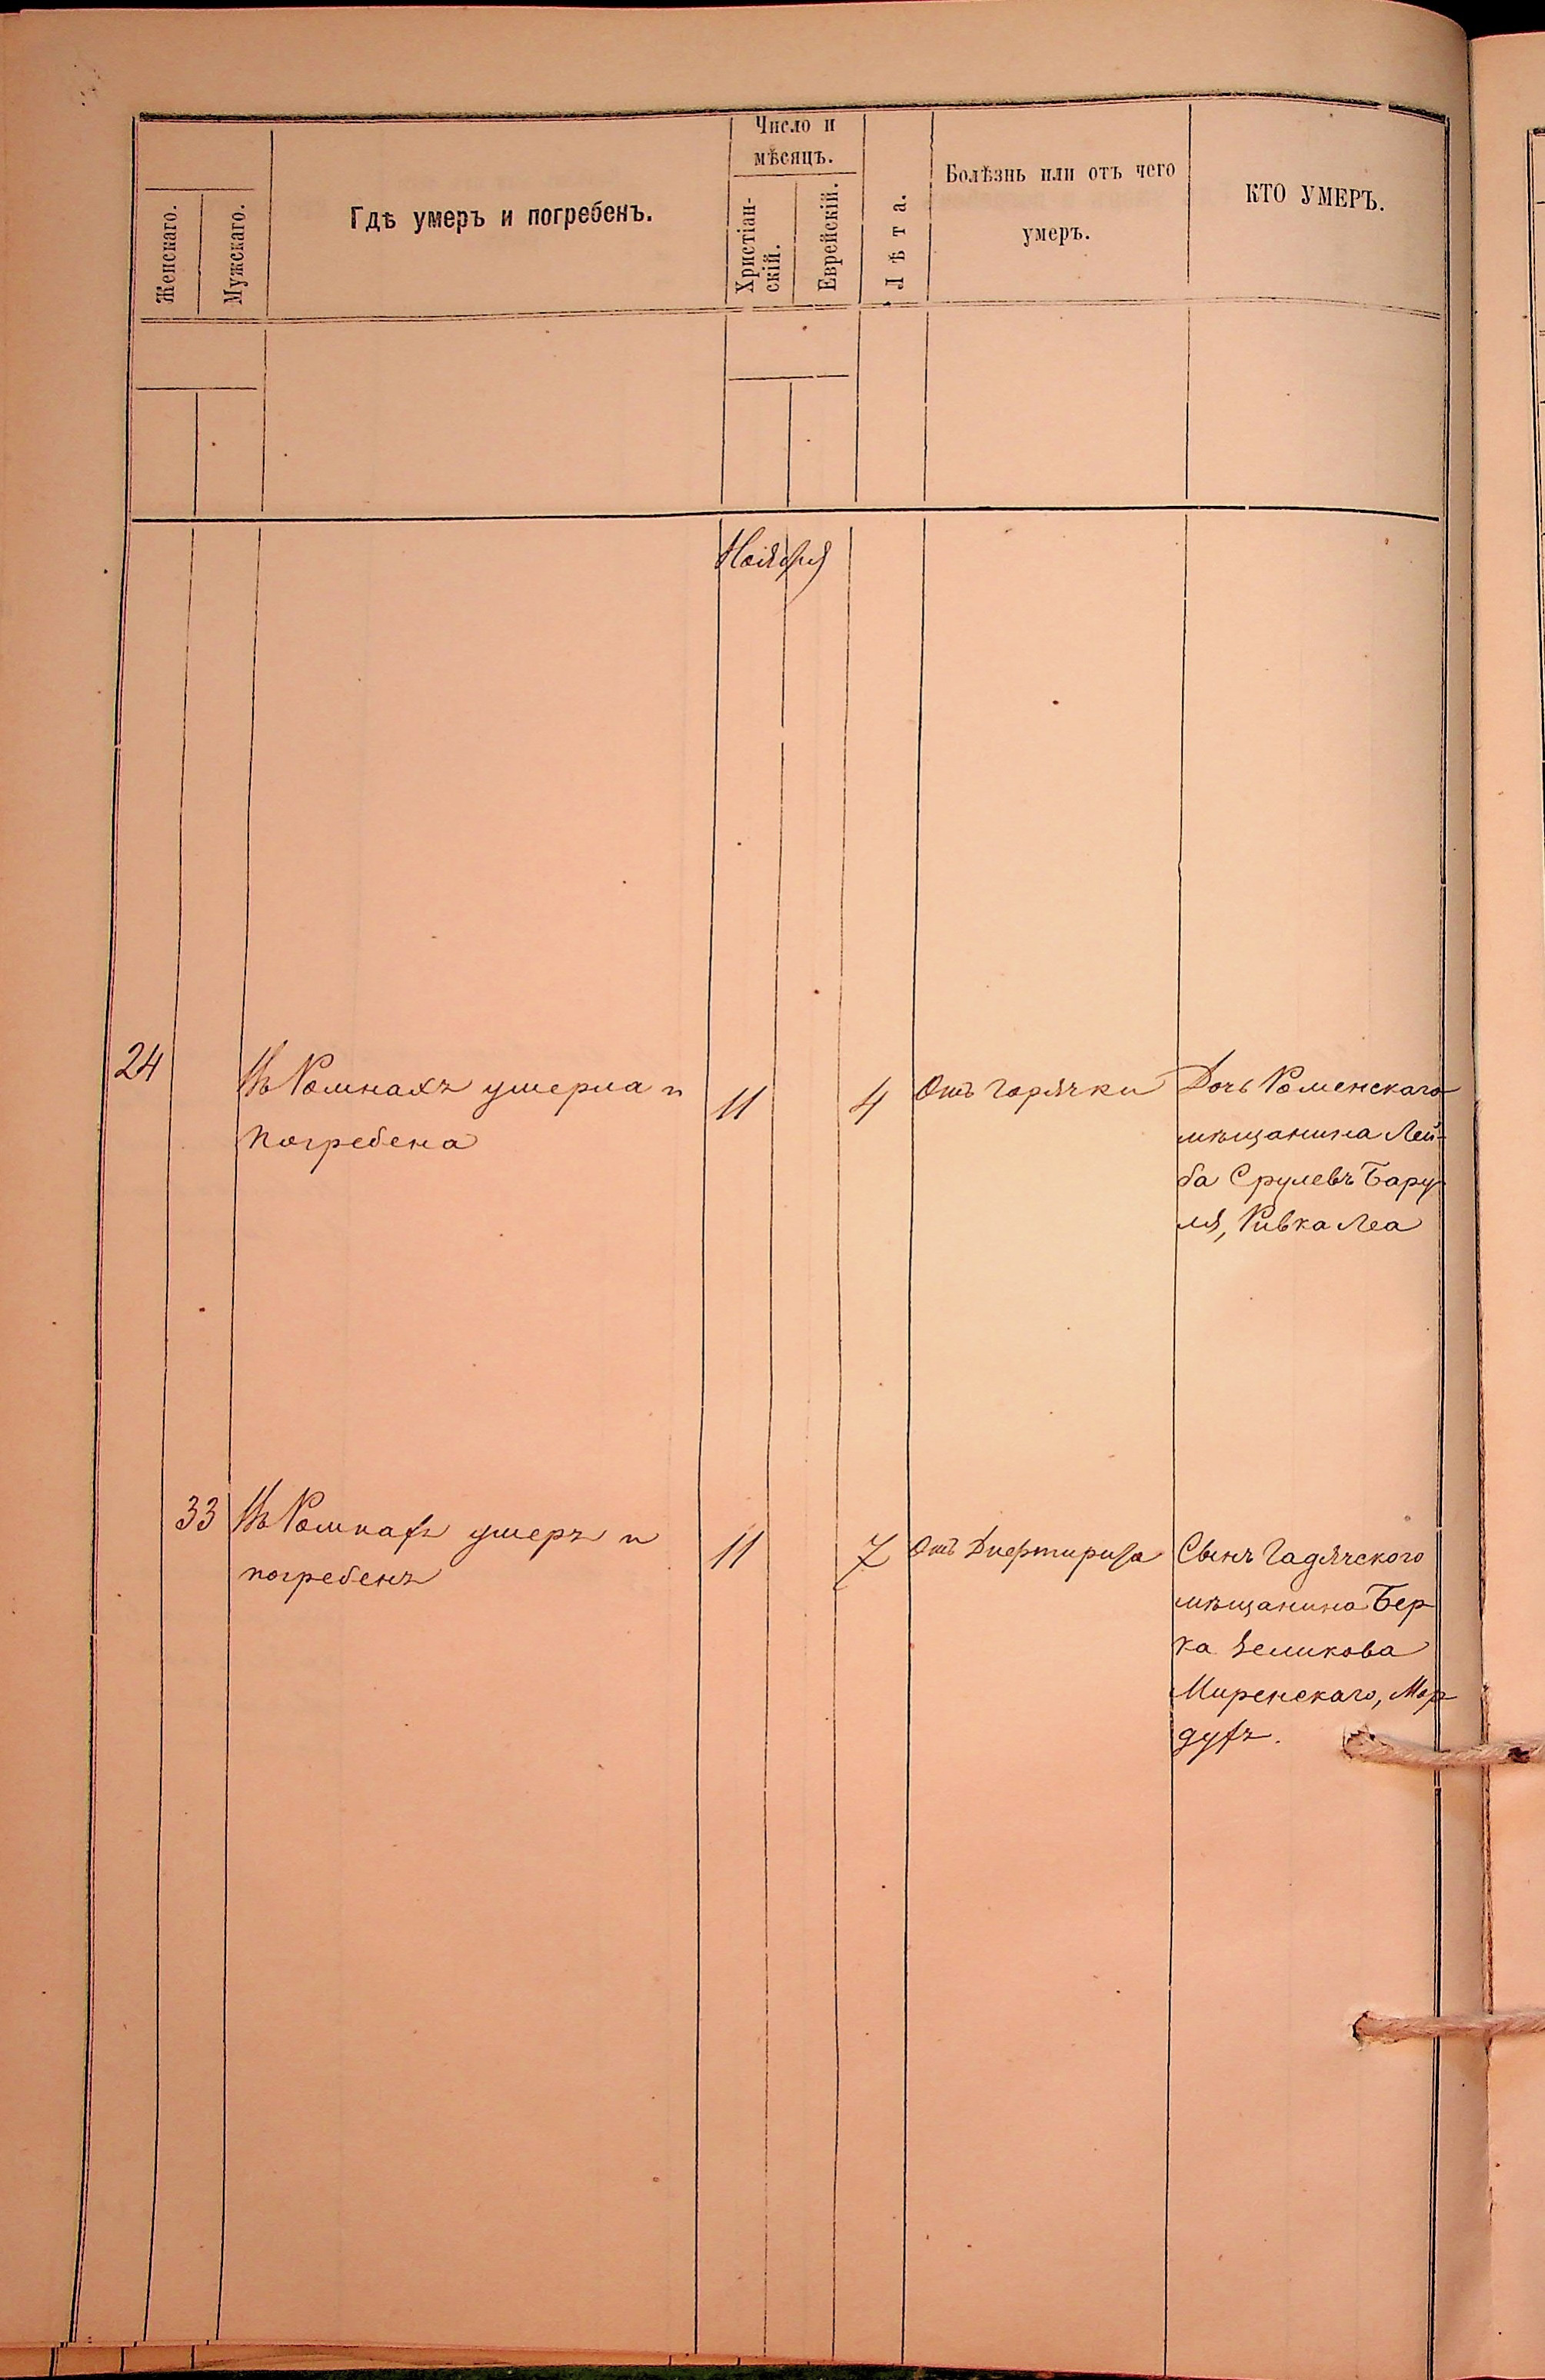 Женскаго.
Мужскаго.
Гдѣ умеръ и погребенъ.
Число и
мѣсяцъ.
Христіан-
скій.
Еврейскій.
Лѣта.
Болѣзнь или отъ чего
умеръ.
КТО УМЕРЪ.
Ноября
24
Въ Ромнахъ умерла и
погребена
11
4
Отъ горячки
Дочь Роменскаго
мѣщанина Лей-
ба Срулевъ Бару
ля, Ривка Леа
33
Въ Ромнахъ умеръ и
погребенъ
11
7
Отъ
Сынъ Гадячского
мѣщанина Бер
ка Зеликова
Миренскаго, Мор
духъ.